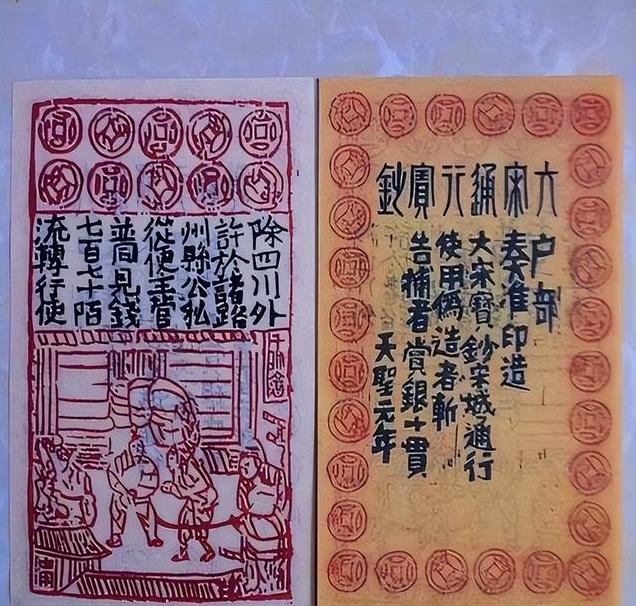 除四川外
許於諸路
州縣公私
從便主管
並同見錢
七百七十陌
流轉行使
千斯倉
大宋通行寶鈔
户部
奏准印造
大宋寶鈔宋城通行
使用偽造者斬
告捕者賞銀十貫
天聖元年